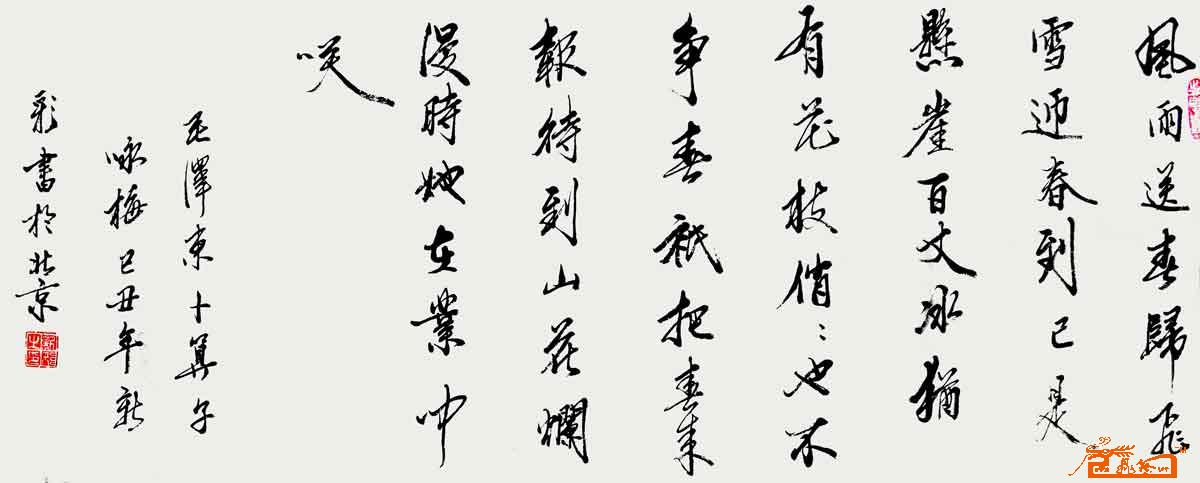 風雨送春歸飛
雪迎春到已是
懸崖百丈冰猶
有花枝俏〻也不
争春祇把春來
報待到山花爛
漫時她在叢中
咲
毛澤東卜算子
咏梅己丑年新
彩書於北京